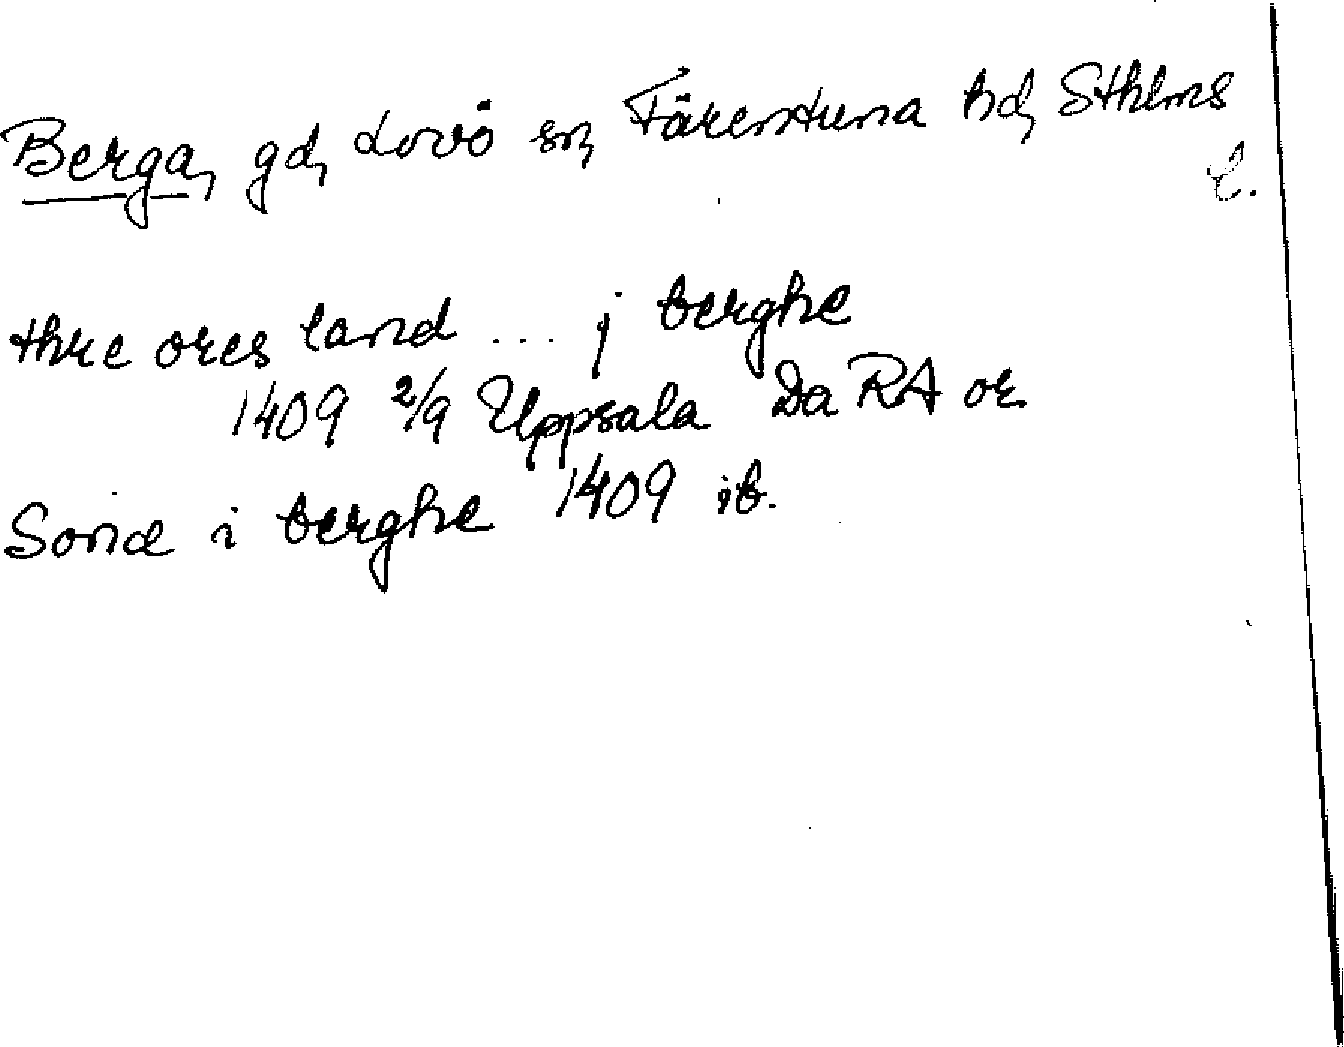 Berga, gd, Lovö sn, Färentuna hd, Sthlms
l.
thre ores land ... j berghe
1409 2/9 Uppsala Da RA or.
Sone i berghe 1409 ib.